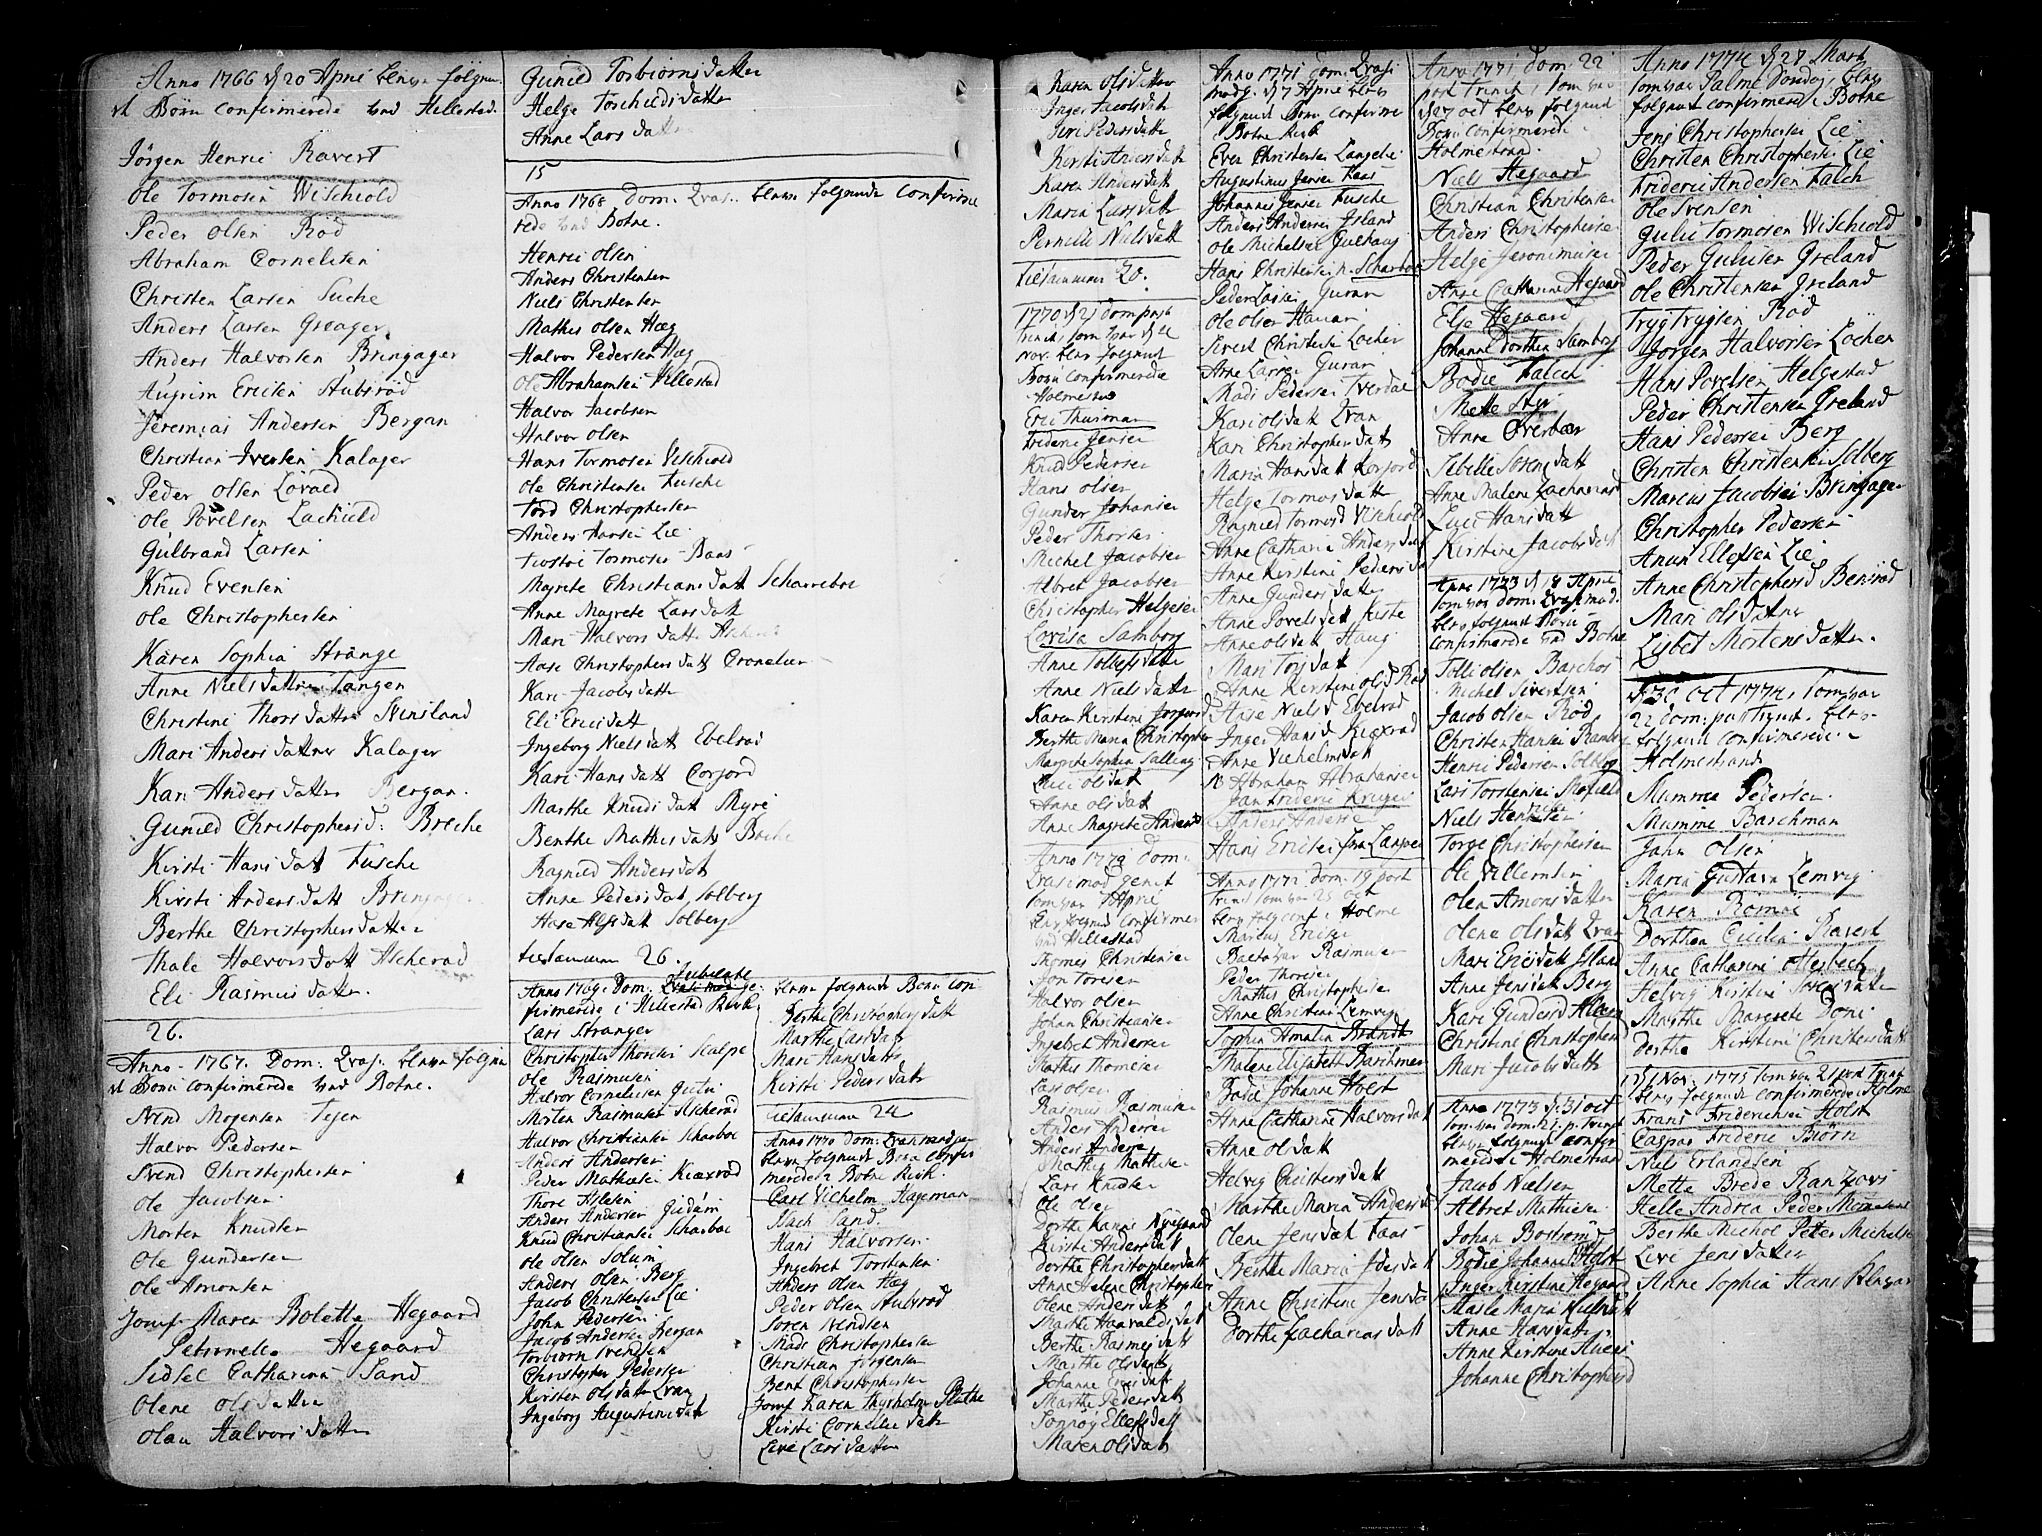 Anno 1766 d 20 April blev følgen
de Börn confirmerede ved Hillestad.
Jörgen Henric Ravert
Ole Tormosen Wischiold
Peder Olsen Röd
Abraham Cornelisen
Christen Larsen Suche
Anders Larsen Greager
Anders Halvorsen Bringager
Augrim Ericsen Stubsröd
Jeremias Andersen Bergan
Christian Iversen Kalager
Peder Olsen Lövald
Ole Povelsen Lachield
Gulbrand Larsen
Knud Evensen
Ole Christophersen
Karen Sophia Strange
Anne Nielsdatter Tangen
Christine Thorsdatter
Mari Andersdatter Kalager
Kari Andersdatter Bergan.
Gunild Christophersd: Breche
Kirsti Hansdatt Fusche
Kirsti Andersdatt Bringager
Berthe Christophersdatter
Thale Halvorsdatt Ascherod
Eli Rasmusdatter.
26.
Anno 1767. Dom: Qvas. bleve følgen
de Börn confirmerede ved Botne.
Svend Mogensen Tejen
Halvor Pedersen
Svend Christophersen
Ole Jacobsen
Morten Knudsen
Ole Gundersen
Ole Amonsen
Jomf Maren Bolette Hegaard
Petronelle Hegaard
Sidsel Catharina Sand
Olene Olsdatter
Olau Halvorsdatter
Gunild Torbiörnsdatter
Helge Toschildsdatter
Anne Larsdatter
15
Anno 1768 Dom. Qvas.. bleve følgende confirme
rede ved Botne.
Henric Olsen
Anders Christensen
Niels Christensen
Mathis Olsen Hæg
Halvor Pedersen Hæg
Ole Abrahamsen Hillestad
Halvor Jacobsen
Halvor Olsen
Hans Tormosen Vischiold
Ole Christensen Fusche
Tord Christophersen
Anders Hansen Lie
Tormosen Baas
Magrete Christiansdatt Scharreboe
Anne Magrete Larsdatt
Mari Halvorsdatter
Aase Christophersdatt Cronelier
Kari Jacobsdatter
Eli Ericsdatt
Ingeborg Nielsdatt Ebelröd
Kari Hansdatt Corsord
Marthe Knudsdatt Myre
Benthe Mathisdatt Breche
Ragnild Andersdatt
Anne Pedersdatt Solberg
Aase Alfsdatt Solberg
tilsammen 26.
Anno 1769. Dom: Jubilate bleve følgende Börn con
firmerede i Hillestad Kirk
Lars Stranger
Christopher Thorsen Kalpe
Ole Rasmusen
Halvor Cornelisen
Morten Rasmusen Ascherod
Halvor Christiansen Scharboe
Anders Andersen
Peder Mathisen Kiexrod
Thore Nilsen
Anders Andersen
Knud Christiansen Scharboe
Ole Olsen Solum
Anders Olsen Berg
Jacob Christensen Lie
John Pedersen
Jacob Andersen Bergan
Torbiörn Svendsen
Christopher Pedersen
Kirsten Olsdatter Qvan
Ingeborg Augustinsdatt
Berthe Christophersdatt
Marthe Larsdatt
Mari Hansdatt
Kirsti Pedersdatt
tilsammen 24
Anno 1770 Dom: Qvasimodogen
bleve følgende Börn confir
merede i Botne Kirk.
Carl Vilhelm Hageman
Nach Sand.
Hans Halvorsen
Ingebret Torstensen
Anders Olsen Hæg
Peder Olsen Stubsrod
Sören Svendsen
Mads Christophersen
Christian Jörgensen
Bent Christophersen
Jomf Karen Thyrholm Bluthe
Kirsti Cornelisdatt
Live Larsdatter
Karen Olsdatter
Inger Jacobsdatt
Siri Pedersdatt
Kirsti Andersdatt
Karen Andersdatt
Maria Larsdatt
Pernille Nielsdatt
Tilsammen 20.
1770 d 21 dom post
Trinit. som var d 4
Nov. blev følgende
Börn confirmerede
Holmestrand
Eric Thurman
Frideric Jensen
Knud Pedersen
Hans Olsen
Gunder Johansen
Peder Thorsen
Michel Jacobsen
Albret Jacobsen
Christopher Helgesen
Lovisa Samborg
Anne Tollefsdatter
Anne Nielsdatter
Karen Kirstine
Berthe Maria Christopher
Margrete Sophia Salling
Luci Olsdatt
Anne Olsdatt
Anne Magrete Anders
Anno 1771 dom:
Qvasimodogenit
som var 7 April
blev følgende confirmer
ved Hillestad
Thomes Christensen
Jon Toresen
Halvor Olsen
Johan Christiansen
Ingebret Andersen
Mathis Thomesen
Lars Olsen
Rasmus Rasmusen
Anders Andersen
Anders Andersen
Mathis Mathisen
Lars Knudsen
Ole Olsen
Dorthe Hansd Nyegaard
Kirsti Andersdatt
Dorthe Christophersdatt
Ane Helene Christophers
Olene Andersdatt
Marthe Haavaldsdatt
Berthe Rasmusdatt
Marthe Olsdatt
Johanne Ericsdatt
Marthe Pedersdatt
Ellefsdatt
Maren Olsdatt
Anno 1771 dom: Qvasi
modg. d 7 April blev
følgende Börn confirme
i Botne Kirk
Even Christensen Langelie
Augustinus Jensen Faas
Johannes Jensen Fusche
Anders Andersen Island
Ole Michelsen Gulhaug
Hans Christensen Scharboe
Peder Larsen Guran
Ole Olsen Hanan
Sivert Christensen Lochen
Arne Larsen Guran
Mads Pedersen Tverdal
Kari Olsdatt Qvan
Kari Christophersdatt
Maria Hansdatt Korsord
Helge Tormosdatt
Ragnild Tormosd Vischiold
Anne Catharin Andersdatt
Anne Kirstine Pedersd
Anne Gundersdatter
Anne Povelsdatt Kiste
Anne Olsdatt Haug
Mari Torsdatt
Anne Kirstine Olsd Röd
Anne Nielsd Ebelrod
Inger Hansd Kiexrod
Anne Vilhelmsdatt
Abraham Abrahamsen
Jan Frideric Kruger
Anders Andersen
Hans Ericsen
Anno 1772 dom. 19 post
Trinit som var 25 Oct
blev følgende i Holme
Marius Ericsen
Baltasar Rasmusen
Peder Thoresen
Mathis Christophersen
Anne Christine Lemvig
Sophia Amalia Brandt
Malene Elisabett Barchman
Bodil Johanne Holst
Anne Catharine Halvorsdatt
Anne Olsdatt
Helvig Christensdatt
Marthe Maria Andersd
Olene Jensdatt Faas
Berthe Maria Joesdatt
Anne Christine Jensd
Dorthe Zachariasdatt
Anno 1771 dom: 22
post Trinit, som var
d 27 oct blev følgende
Börn confirmerede
Holmestrand.
Niels Hegaard
Christian Christensen
Anders Christophersen
Helge Jeronimusen
Anne Cathrine Hegaard
Else Hegaard
Johanne Dorthea Samborg
Bodil Falch
Mette Styr
Anne Overbær
Sibille Sörensdatt
Anne Malene Zachariasd
Luci Hansdatt
Kirstine Jacobsdatt
Anno 1773 d 18 April
som var dom: Qvasimod.
blev følgende Börn
confirmerede ved Botne
Tolli Olsen Baschos
Michel Sivertsen
Jacob Olsen Röd
Christen Hansen
Henric Pedersen Solberg
Lars Torstensen
Niels Henrichsen
Torge Christophersen
Ole Villemsen
Olea Amonsdatter
Olene Olsdatt Qvan
Mari Ericsdatt Island
Anne Jensdatt Berg
Kari Gundersd
Christine Christophersd
Mari Jacobsdatt
Anno 1773 d 31 oct
som var dom: 21. p. Trinit
blev følgende confir
merede i Holmestrand
Jacob Nielsen
Albret Mathisen
Johan Bostrom
Bodie Johanne Holst
Inger Kirstine Hegaard
Maria
Anne Hansdatter
Anne Kirstine
Johanne Christophersd
Anno 1774 d 27 Mart
som var Palme Söndag, blev
følgende confirmered i Botne
Jens Christophersen Lie
Christen Christophersen Lie
Frideric Andersen Falch
Ole Svensen
Gulic Tormosen Wischiold
Peder Gulicsen Greland
Ole Christensen Greland
Tryg Trygsen Röd
Jörgen Halvorsen Löchen
Hans Povelsen Helgestad
Peder Christensen Greland
Hans Pedersen Berg
Christen Christensen Solberg
Marcus Jacobsen Bringager
Christopher Pedersen
Anun Ellefsen Lie
Anne Christophersd Bensrod
Mari Olsdatter
Lisbet Mortensdatter.
d 30 oct 1774, som var
22 dom: post Trinit. blev
følgende confirmerede
Holmestrand
Mumme Pedersen
Mumme Barchman
John Olsen
Maria Gustava Lemvig
Karen Römer
Dorthea Cecilia Ravert
Anne Catharine Ottesbech
Helvig Kirstine Sörensdatter
Marthe Margrete Done
Berthe Kirstine Christensdatt
d 5 Nov. 1775 som var 21 post Trinit
blev følgende confirmerede Holme
Frans Friderichsen Holst
Caspar Frideric Biörn
Niels Erlandsen
Mette Brede Ranzovs
Helle Andrea Peder
Berthe Michol Peter Michelse
Live Jensdatter
Anne Sophia Hans